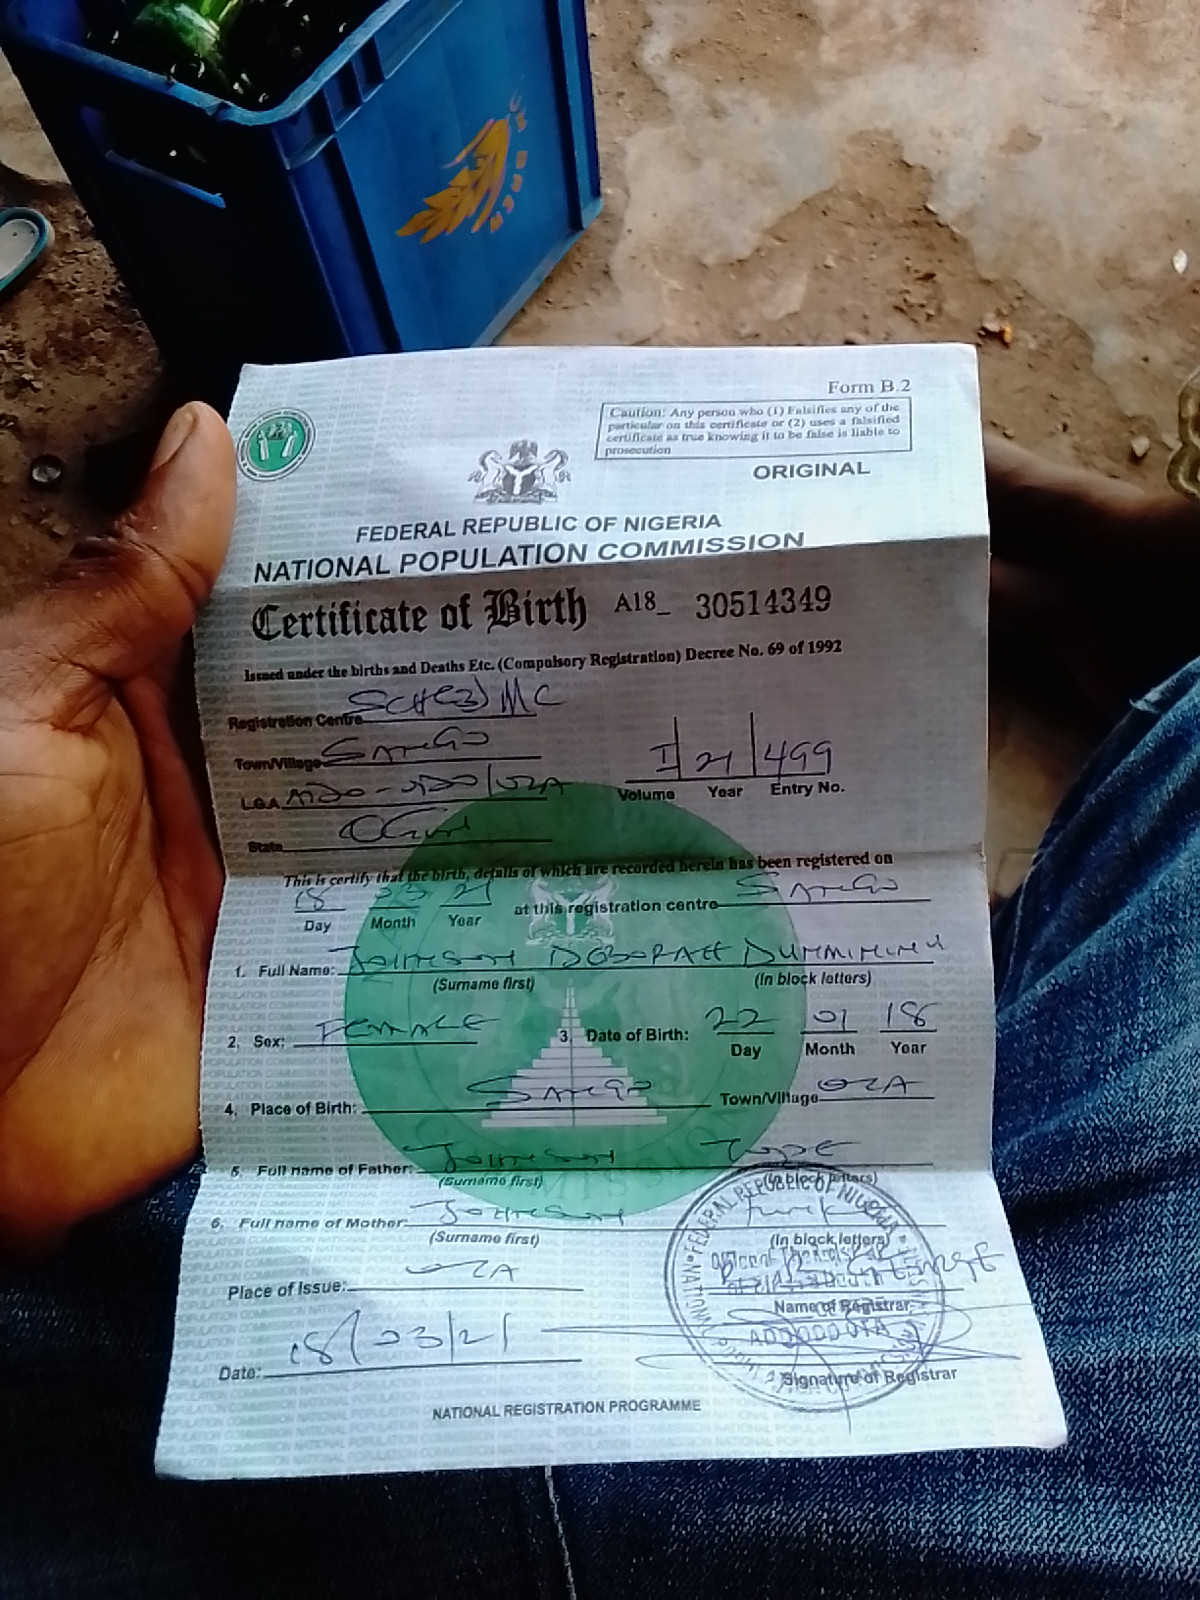 Form B.2
Caution: Any person who (1) Falsifies any of the
particular on this certificate or (2) uses a falsified
certificate as true knowing it to be false is liable to
prosecution
ORIGINAL
FEDERAL REPUBLIC OF NIGERIA
NATIONAL POPULATION COMMISSION
Certificate of Birth A18_ 30514349
Issued under the births and Deaths Etc. (Compulsory Registration) Decree No. 69 of 1992
Registration Centre
Town/Village SANGO
L.G.A ADO-ODO/OTA
I 21 499
Volume Year Entry No.
State Ogun
This is certify that the birth, details of which are recorded herein has been registered on
18 03 21 at this registration centre SANGO
Day Month Year
1. Full Name: JOHNSON DEBORAH
(Surname first) (In block letters)
2. Sex: FEMALE 3. Date of Birth: 22 01 18
Day Month Year
4. Place of Birth: SANGO Town/Village OTA
5. Full name of Father: JOHNSON TOPE
(Surname first) (In block letters)
6. Full name of Mother: JOHNSON
(Surname first) (In block letters)
Place of Issue: OTA
Name of Registrar
Date: 18/03/21
Signature of Registrar
NATIONAL REGISTRATION PROGRAMME